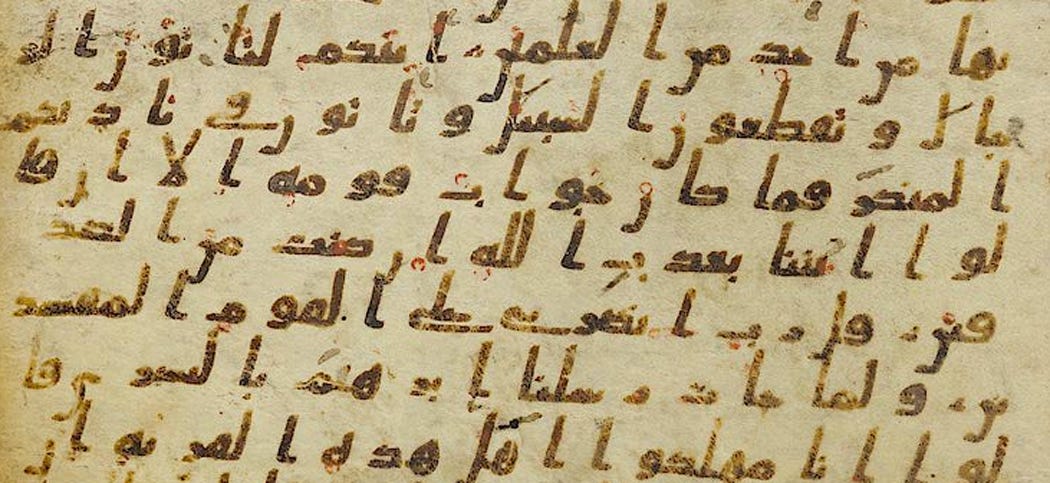 بها من احد من العلمين انكم لتاتون الر
جال وتقطعون السبيل وتاتون في ناديكم
المنكر فما كان جواب قومه الا ان قا
لوا ائتنا بعذاب الله ان كنت من الصد
قين قل رب انصرني على القوم المفسد
ين ولما جات رسلنا ابرهيم بالبشرى قا
لوا انا مهلكوا اهل هذه القرية ان